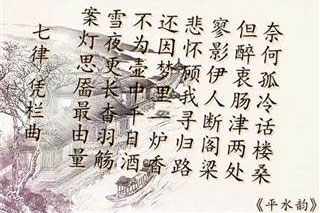 七律 凭栏曲
案灯思孺最由量
雪夜更长杳羽觞
不为壶中千日酒
还因梦里一炉香
悲怀顾我寻归路
寥影伊人断阁梁
但醉衷肠津两处
奈何孤冷话楼桑
《平水韵》